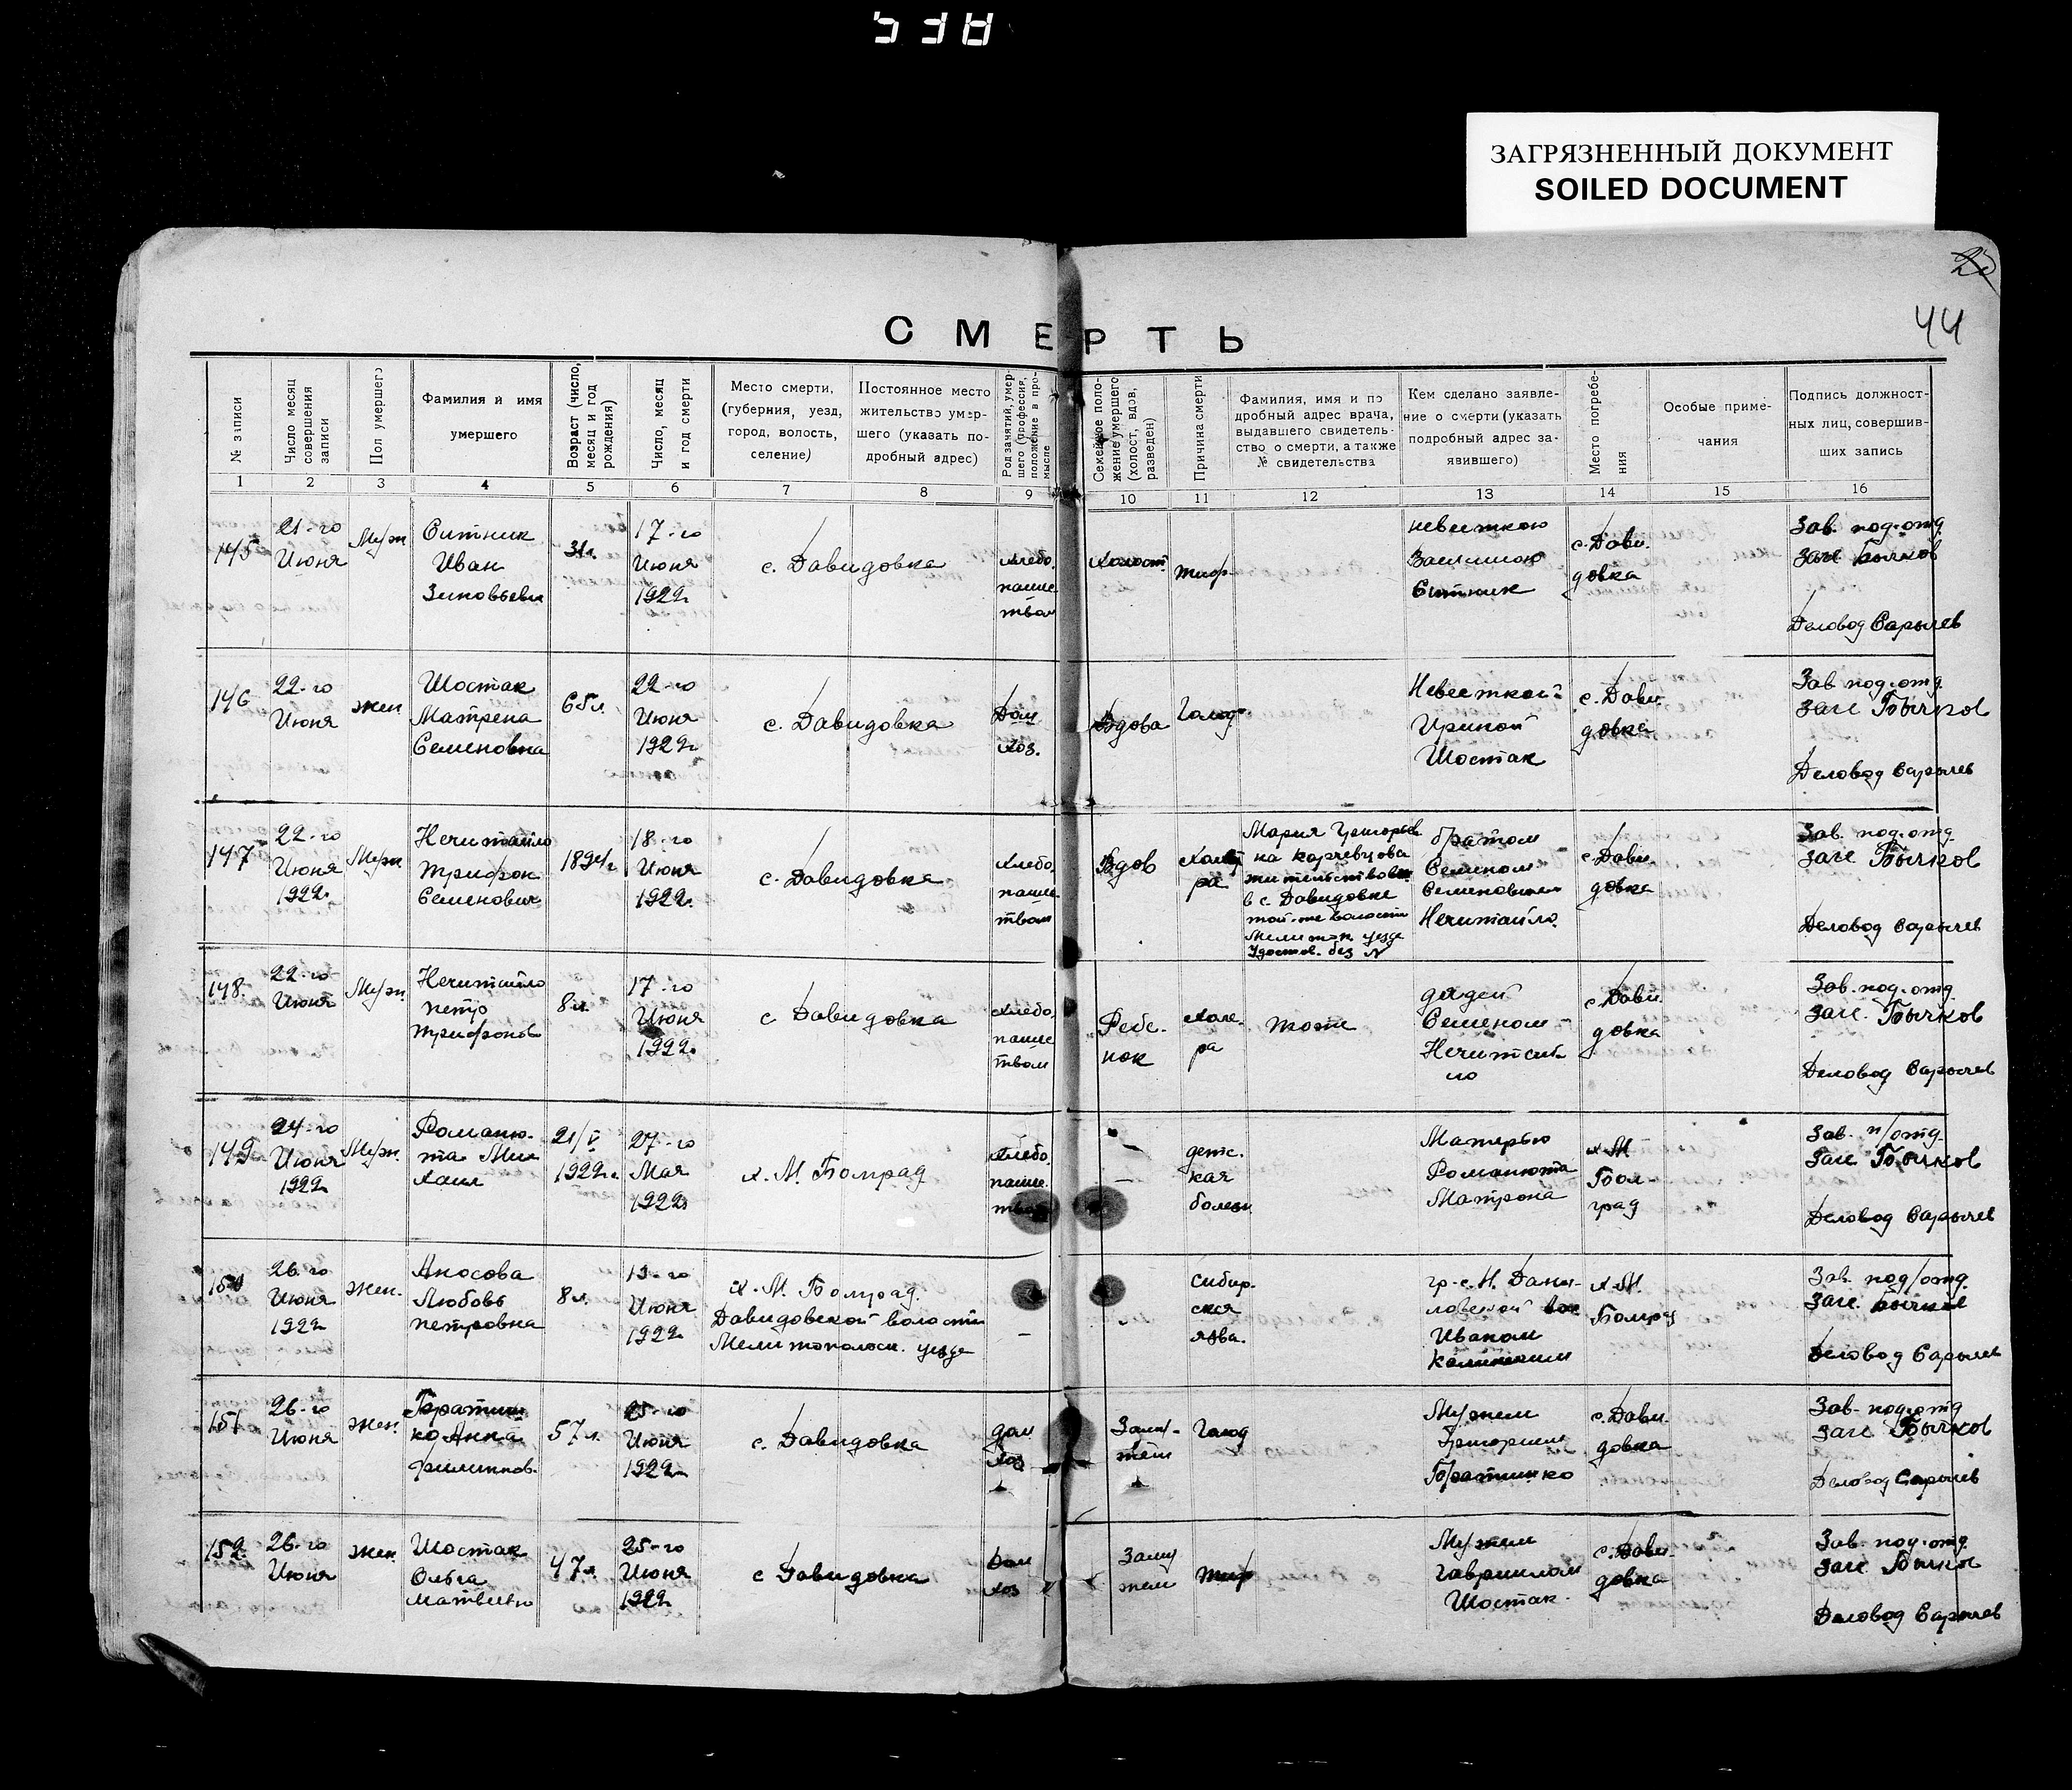 538
ЗАГРЯЗНЕННЫЙ ДОКУМЕНТ
SOILED DOCUMENT
44
СМЕРТЬ
№ записи
Число месяц совершения записи
Пол умершего
Фамилия и имя умершего
Возраст (число, месяц и год рождения)
Число, месяц и год смерти
Место смерти, (губерния, уезд, город, волость, селение)
Постоянное место жительство умершего (указать подробный адрес)
Род занятий, умершего (профессия, положение в промысле
Семейное положение умершего (холост, вдов, разведен)
Причина смерти
Фамилия, имя и подробный адрес врача, выдавшего свидетельство о смерти, а также № свидетельства
Кем сделано заявление о смерти (указать подробный адрес заявившего)
Место погребения
Особые примечания
Подпись должностных лиц, совершивших запись
1 2 3 4 5 6 7 8 9 10 11 12 13 14 15 16
145 21-го Июня Муж Ситник Иван Зиновьеви 31г. 17-го Июня 1922г с. Давидовка хлебопашеством Холост тиф невесткою Ситник с. Давидовка Зав. подотд. Загс Бычков Деловод Сарычев
146 22-го Июня жен Шостак Матрена Семеновна 65л. 22-го Июня 1922г с. Давидовка Дом. хоз. Вдова Голод Невесткой Ириной Шостак с. Давидовка Зав подотд. Загс Бычков Деловод Сарычев
147 22-го Июня 1922г. Муж Нечитайло Трифон Семенович 1894г 18-го Июня 1922г. с. Давидовка хлебопашеством Вдов Холера Мария Григорьевна жительствов. в с. Давидовке той-же волости Мелитоп. уезда Удостов. без № братом Семеном Семеновичем Нечитайло с. Давидовка Зав. подотд Загс Бычков Деловод Сарычев
148. 22-го Июня Муж. Нечитайло петр трифонов 8л. 17-го Июня 1922г. с Давидовка хлебопашеством Ребенок холера тоже дядей Семеном Нечитайло с. Давидовка Зав. подотд Загс. Бычков Деловод Сарычев
149 24-го Июня 1922 Муж. Романюта Михаил 21/V 1922г. 27-го Мая 1922г х. М. Болград хлебопашеством — детская болезн Матерью Романюта Матрона х. М. Болград Зав. п/отд. Загс Бычков Деловод Сарычев
150 26-го Июня 1922 жен. Аносова Любовь петровна 8л. 13-го Июня 1922г х. М. Болград. Давидовской волости Мелитопольск. уезда — сибирская язва. гр. с. Н. Даниловской вол Иваном х. М. Болград Зав. под/отд. Загс. Бычков Деловод Сарычев
151 26-го Июня жен. Братишко Анна филиппов. 57л. 25-го Июня 1922г с. Давидовка дом хоз Замужем Голод Мужем Григорием Братишко с. Давидовка Зав. подотд Загс Бычков Деловод Сарычев
152. 26-го Июня жен. Шостак Ольга Матвеевн 47л. 25-го Июня 1922г с Давидовка Дом хоз Замужем Тиф Мужем Гавриилом Шостак. с. Давидовка Зав. подотд Загс Бычков Деловод Сарычев